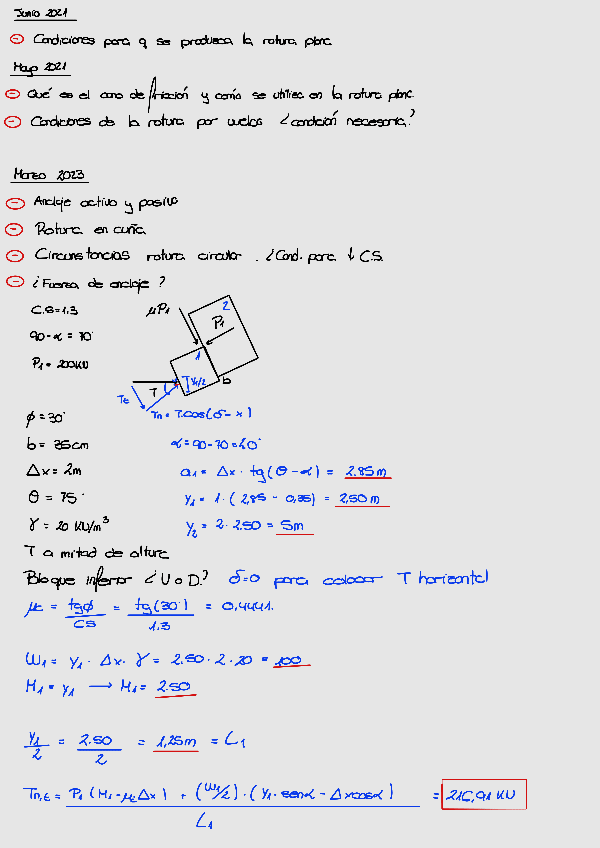 Junio 2021
Condiciones para q se produzca la rotura plana.
Mayo 2021
Qué es el cono de fricción y como se utiliza en la rotura plana.
Condiciones de la rotura por vuelco ¿condición necesaria?
Marzo 2023
Anclaje activo y pasivo
Rotura en cuña.
Circunstancias rotura circular. ¿Cond. para ↓ C.S.
¿Fuerza de anclaje?
C.S=1.3
90-α = 70°
P1 = 200KN
μP1
2
P1
1
y1/2
b
T
Tt
Tn = T.cos(δ-α)
ϕ = 30°
b = 35cm
α = 90-70 = 20°
Δx = 2m
a1 = Δx · tg(θ-α) = 2.85m
θ = 75°
y1 = 1·(2,85 - 0,35) = 2,50m
γ = 20 KN/m³
y2 = 2·2.50 = 5m
T a mitad de altura
Bloque inferior ¿U o D? δ=0 para colocar T horizontal
μc = tgϕ/CS = tg(30°)/1.3 = 0,4441.
W1 = y1 · Δx · γ = 2.50 · 2 · 20 = 100
M1 = y1 → M1 = 2.50
y1/2 = 2.50/2 = 1,25m = L1
Tn,t = P1 (M1 - μcΔx) + (W1/2)·(y1·senα - Δxcosα) / L1 = 216,91 KN